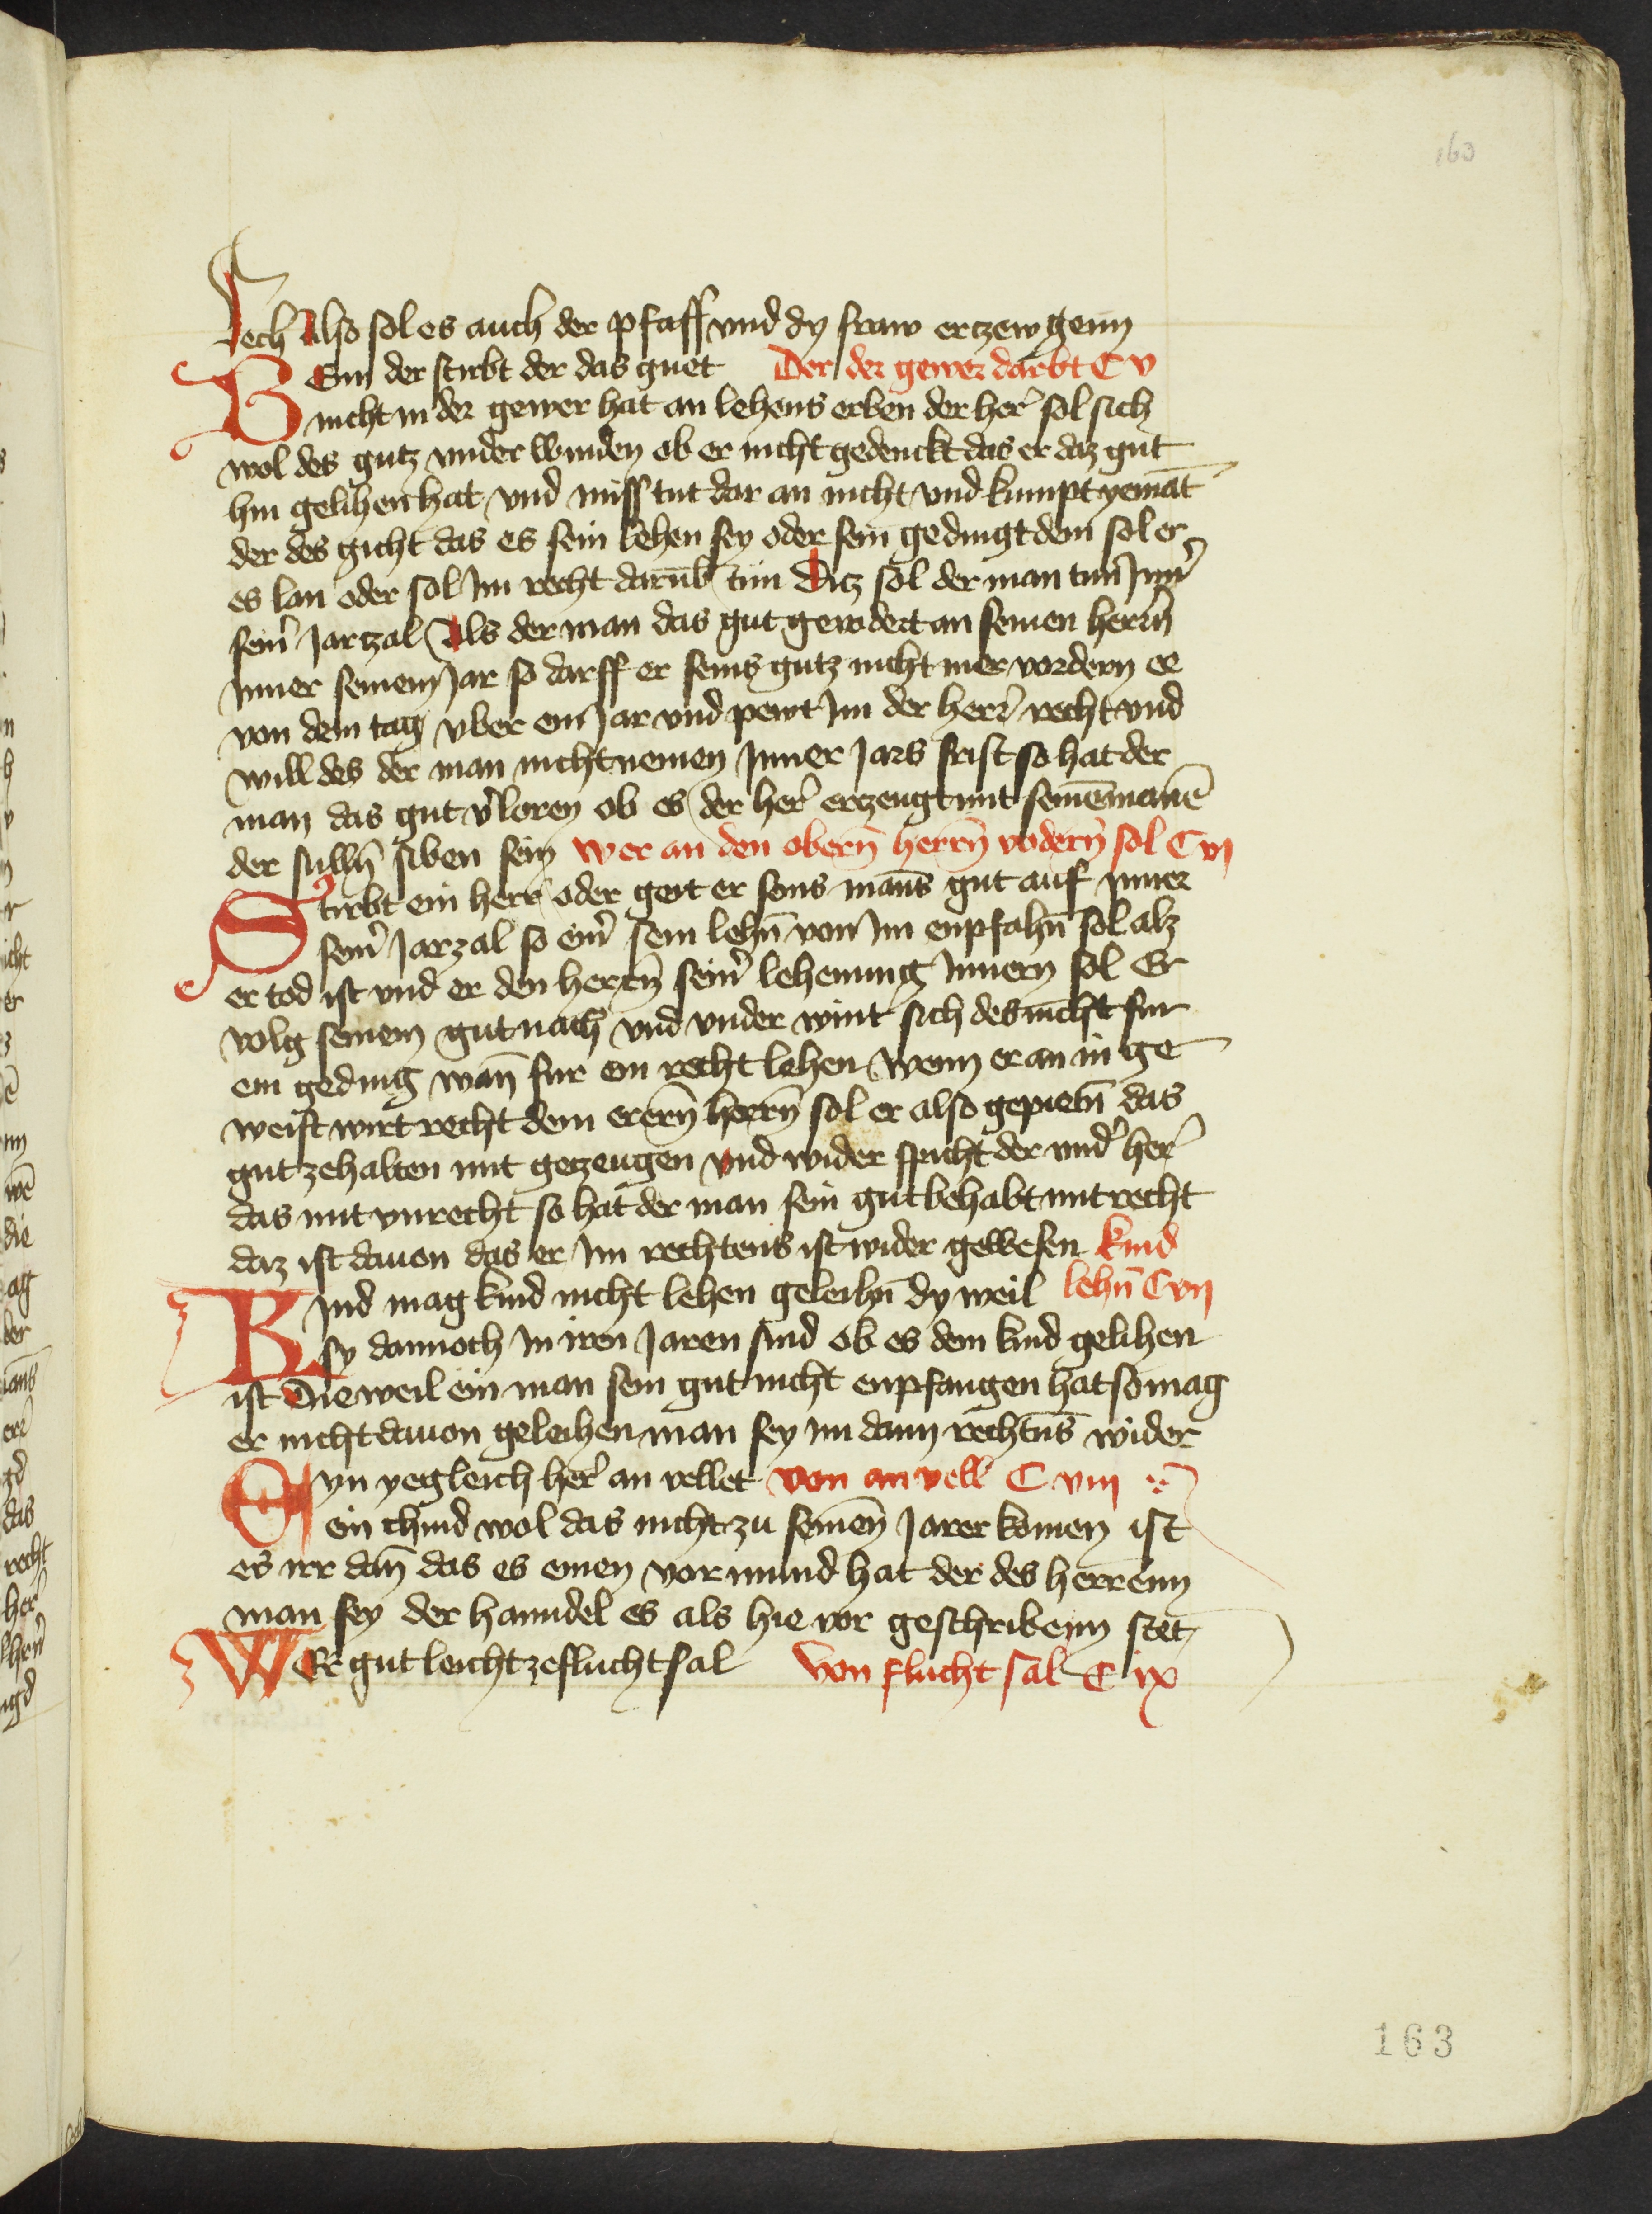 163
lech Also sol es auch der pfaff vnd dy fraw ertzewgenn
BEnn der stirbt der das guet Der der gewer darbt C v
nicht in der gewer hat an lehens erben der her̄ sol sich
wol des gutz vnder winden ob er nicht gedenckt das er daz gut
hin gelihen hat vnd miss tut dar an nicht vnd kumpt yemāt
der des gicht das es sein lehen sey oder sein gedingt dem sol er
es lan oder sol Im recht darūb tun Ditz sol der man tun Inn̄
sein̄ Jartzal Als der man das gut gewdert an seinen herrn̄
Inner seinem Jar so darff er seins gutz nicht mer vordern ee
von dem tag vber ein Jar vnd pewt Im der herr̄ recht vnd
will des der man nicht nemen Inner Jars frist so hat der
man das gut v̄loren ob es der her̄ ertzeugt mit seinē manē
der sulln̄ siben sein Wer an den obern̄ herrn̄ vodern̄ sol C vj
Stirbt ein herr̄ oder geit er seins mans gut auf Inner
sein̄ Jarzal so ein̄ sein lehn̄ von Im enpfahn̄ sol alz
er tod ist vnd er den herrn̄ sein̄ lehenung Innern sol Er
volg seinem gut nach vnd vnder wint sich des nicht fur
ein geding wan̄ fur ein recht lehen Wenn er an in ge
weist wirt recht dem erern̄ herrn̄ sol er also gepietn̄ das
gut zehalten mit getzeugen vnd wider spricht der vnd̄ her̄
das mit vnrecht so hat der man sein gut behabt mit recht
daz ist dauon das er Im rechtens ist wider gewesen kind
KInd mag kind nicht lehen geleihn̄ dy weil lehn̄ C vij
sy dannoch In iren Jaren sind ob es dem kind gelihen
ist Die weil ein man sein gut nicht enpfangen hat so mag
er nicht dauon geleihen man sey im dann rechtn̄s wider
Eyn yegleich her̄ an vellet von an vell C viij
ein chind wol das nicht zu seinen̄ Jaren komen ist
es irr dan̄ das es einen vormund hat der des herrenn
man sey der hanndel es als hie vor geschribenn stet
WEr gut leicht ze flucht sal Von flucht sal C ix
163